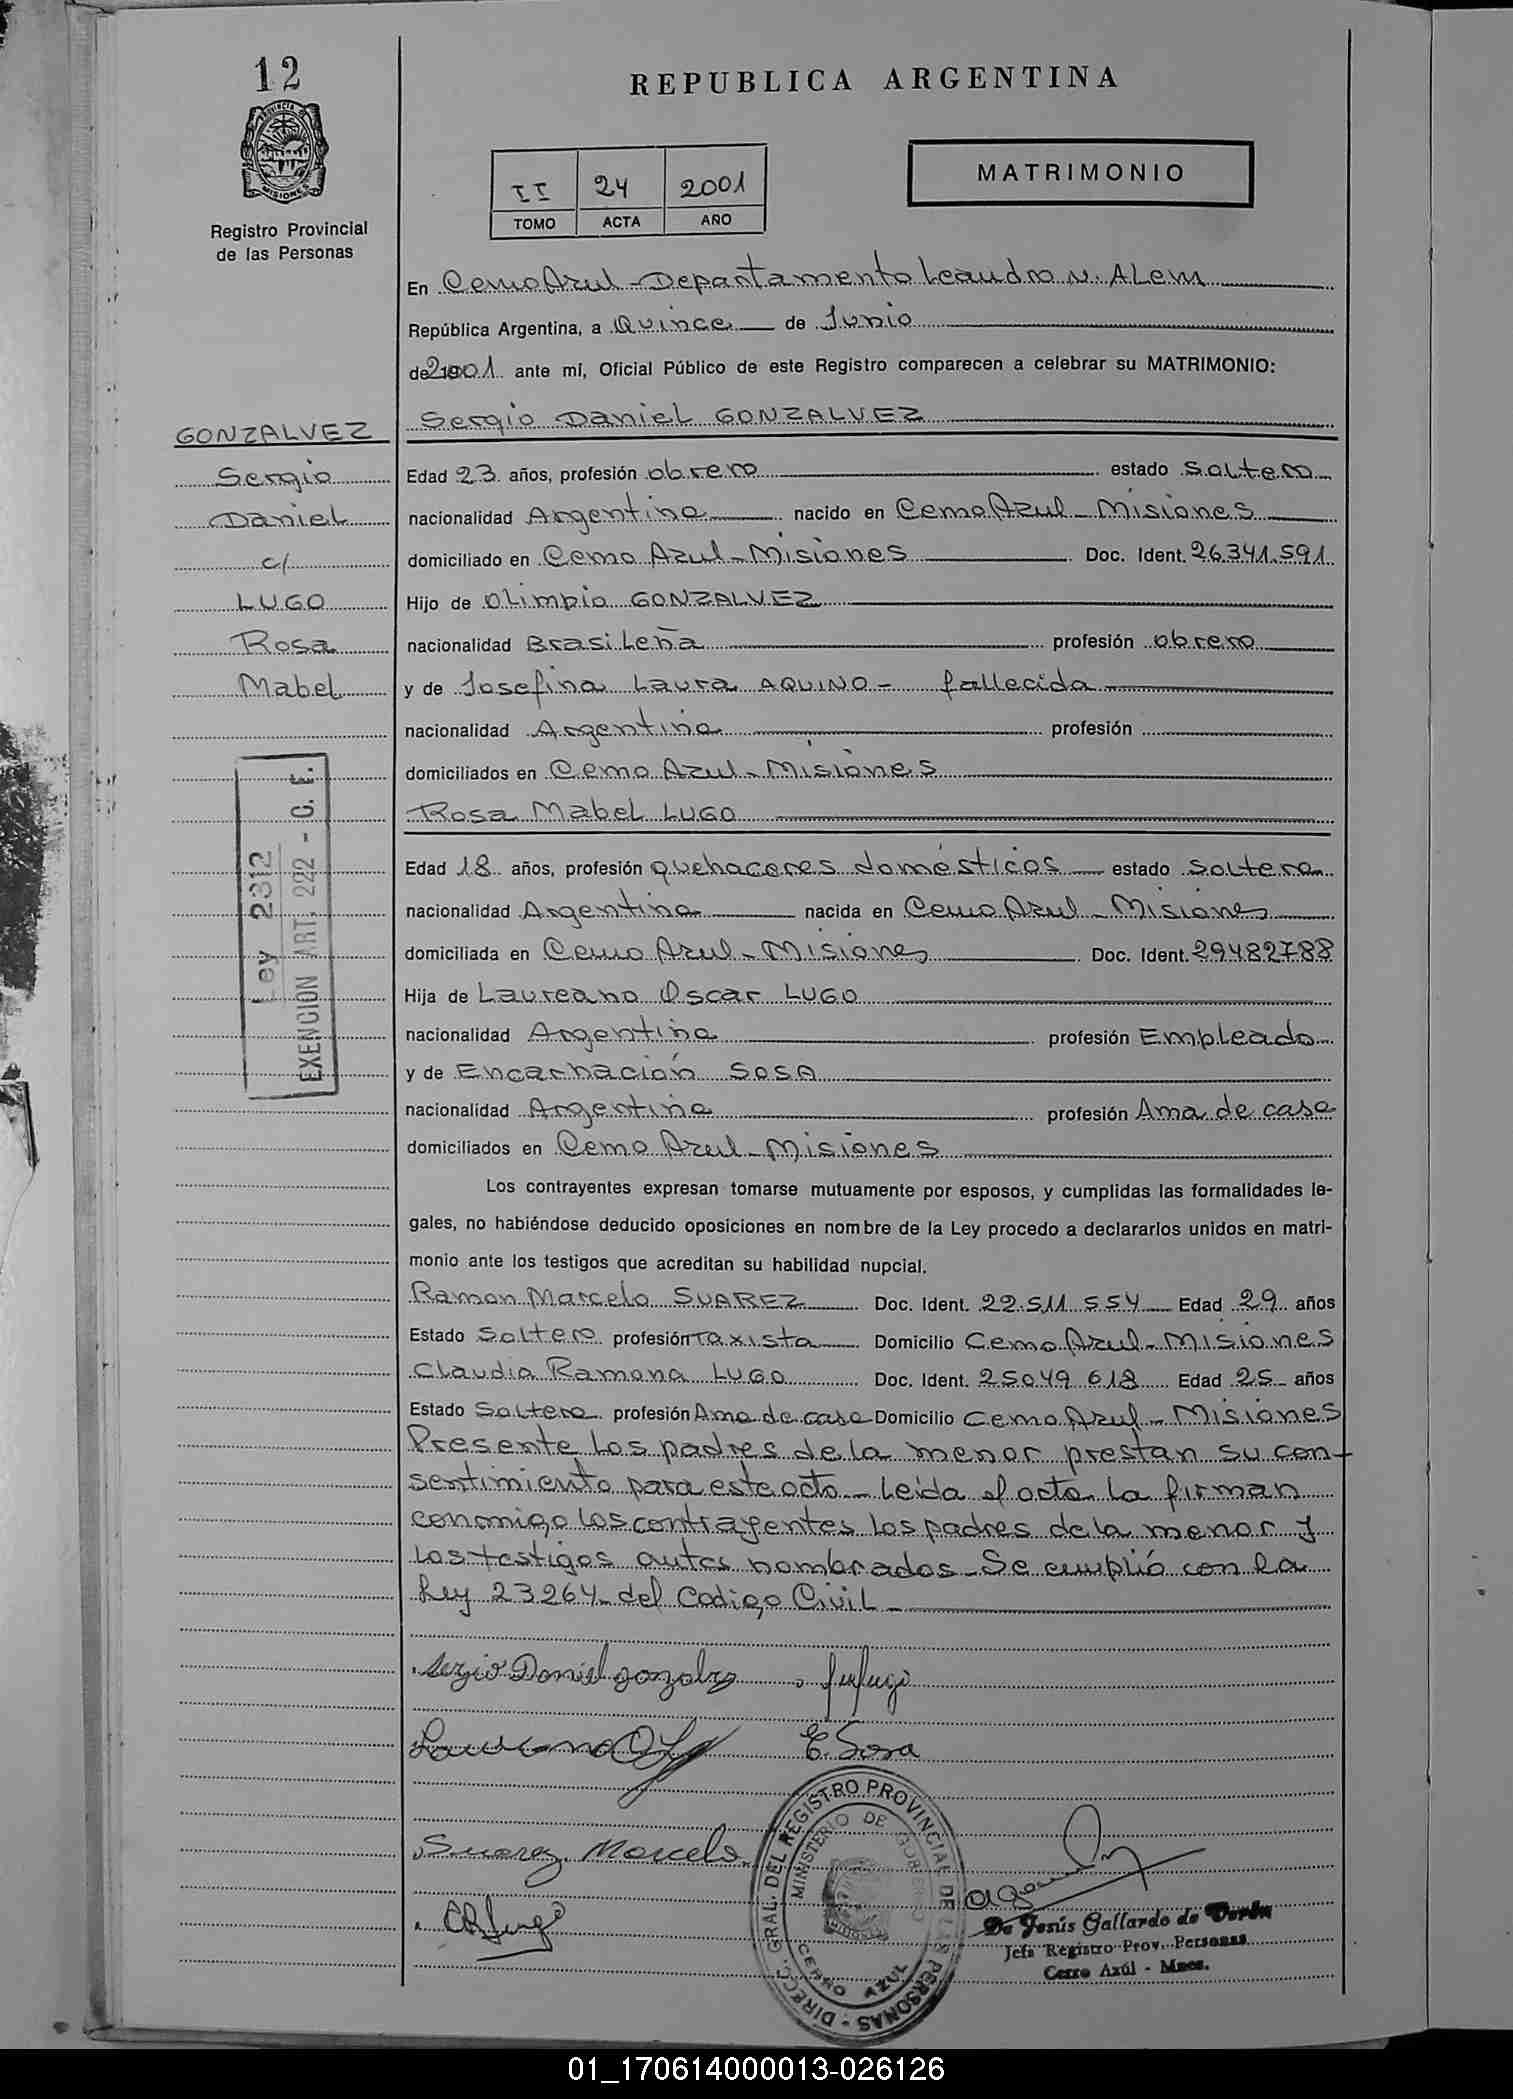 12
REPUBLICA ARGENTINA
MATRIMONIO
II 24 2001
TOMO ACTA AÑO
Registro Provincial
de las Personas
En Cerro Azul - Departamento Leandro N. ALem
República Argentina, a Quince de Junio
de 2001 ante mí, Oficial Público de este Registro comparecen a celebrar su MATRIMONIO:
Sergio Daniel GONZALVEZ
GONZALVEZ
Sergio
Daniel
c/
LUGO
Rosa
Mabel
Ley 2312
EXENCION ART. 222 - C. F.
Edad 23 años, profesión obrero estado soltero
nacionalidad Argentina nacido en Cerro Azul - Misiones
domiciliado en Cerro Azul - Misiones Doc. Ident. 26.341.591
Hijo de Olimpio GONZALVEZ
nacionalidad Brasileña profesión obrero
y de Josefina Laura AQUINO - fallecida
nacionalidad Argentina profesión
domiciliados en Cerro Azul - Misiones
Rosa Mabel LUGO
Edad 18 años, profesión quehaceres domésticos estado soltera
nacionalidad Argentina nacida en Cerro Azul - Misiones
domiciliada en Cerro Azul - Misiones Doc. Ident. 29482788
Hija de Laureano Oscar LUGO
nacionalidad Argentina profesión Empleado
y de Encarnación SOSA
nacionalidad Argentina profesión Ama de casa
domiciliados en Cerro Azul - Misiones
Los contrayentes expresan tomarse mutuamente por esposos, y cumplidas las formalidades le-
gales, no habiéndose deducido oposiciones en nombre de la Ley procedo a declararlos unidos en matri-
monio ante los testigos que acreditan su habilidad nupcial.
Ramon Marcelo SUAREZ Doc. Ident. 22.511 554 Edad 29 años
Estado Soltero profesión Taxista Domicilio Cerro Azul - Misiones
Claudia Ramona LUGO Doc. Ident. 25049 618 Edad 25 años
Estado Soltera profesión Ama de casa Domicilio Cerro Azul - Misiones
Presente los padres de la menor prestan su con-
sentimiento para este acto - Leida el acta la firman
conmigo los contrayentes los padres de la menor y
los testigos antes nombrados - Se cumplió con la
Ley 23264 - del Codigo Civil -
Sergio Daniel gonzalvez
E. Sosa
Suarez Marcelo
DIRECC. GRAL. DEL REGISTRO PROVINCIAL DE LAS PERSONAS -
MINISTERIO DE GOBIERNO
CERRO AZUL
De Jesús Gallardo de Verón
Jefa Registro Prov. Personas
Cerro Azúl - Mnes.
01_170614000013-026126